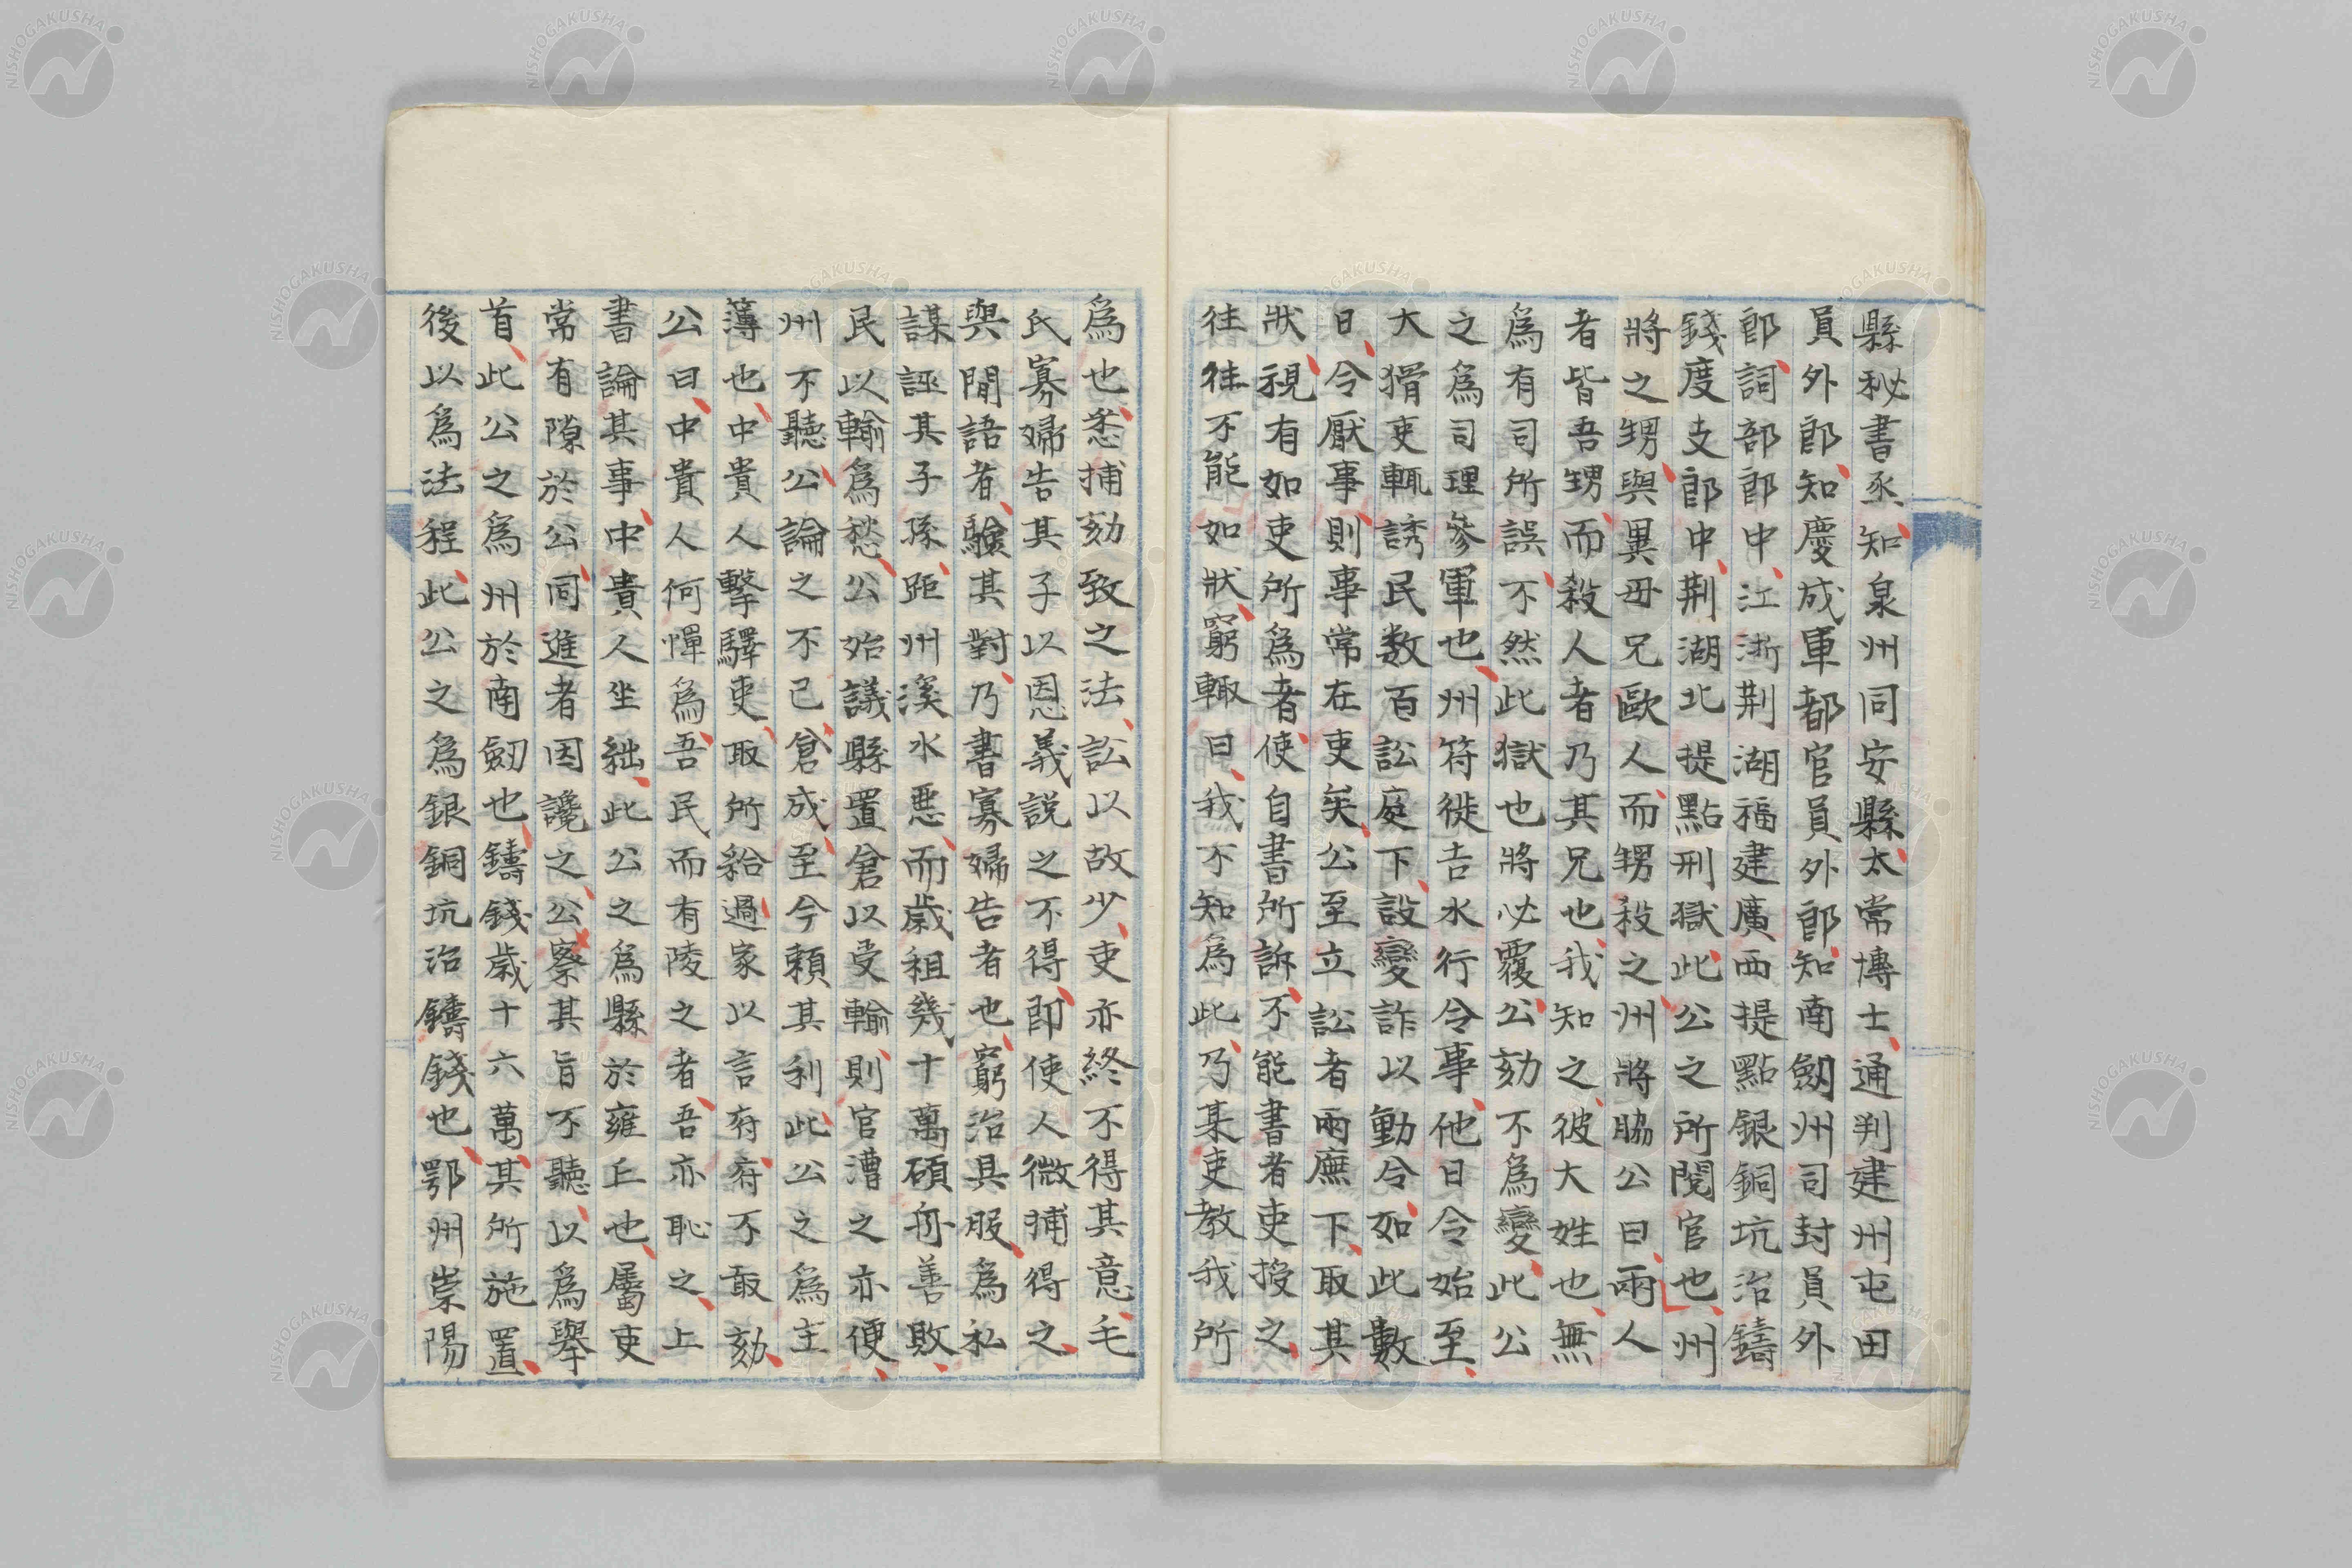 縣秘書丞知泉州同安縣太常博士通判建州屯田
員外郎知慶成軍都官員外郎知南劔州司封員外
郎詞部郎中江浙荆湖福建廣西提點銀銅坑冶鑄
錢度支郎中荆湖北提點刑獄此公之所閱官也州
將之甥與異母兄歐人而甥殺之州將脇公曰兩人
者皆吾甥而殺人者乃其兄也我知之彼大姓也無
爲有司所誤不然此獄也將必覆公劾不爲變此公
之爲司理參軍也州符徙吉水行令事他日令始至
大猾吏輒誘民数百訟庭下設變詐以動令如此數
日令厭事則事常在吏矣公至立訟者兩廡下取其
狀視有如吏所爲者使自書所訴不能書者吏授之
往往不能如狀窮輙曰我不知爲此乃某吏教我所
爲也悉捕劾致之法訟以故少吏亦終不得其意毛
氏寡婦告其子以恩義説之不得即使人微捕得之
與閒語者驗其對乃書寡婦告者也窮治具服爲私
謀誣其子孫距州溪水惡而歲租幾十萬碩舟善敗
民以輸爲愁公始議縣置倉以受輸則官漕之亦便
州不聽公論之不已倉成至今賴其利此公之爲主
簿也中貴人擊驛吏取所給過家以言府府不敢劾
公曰中貴人何憚爲吾民而有陵之者吾亦恥之上
書論其事中貴人坐絀此公之爲縣於雍丘也屬吏
常有隙於公同進者因讒之公察其旨不聽以爲舉
首此公之爲州於南劔也鑄錢歲十六萬其所施置
後以爲法程此公之爲銀銅坑冶鑄錢也鄂州崇陽
NISHOGAKUSHA